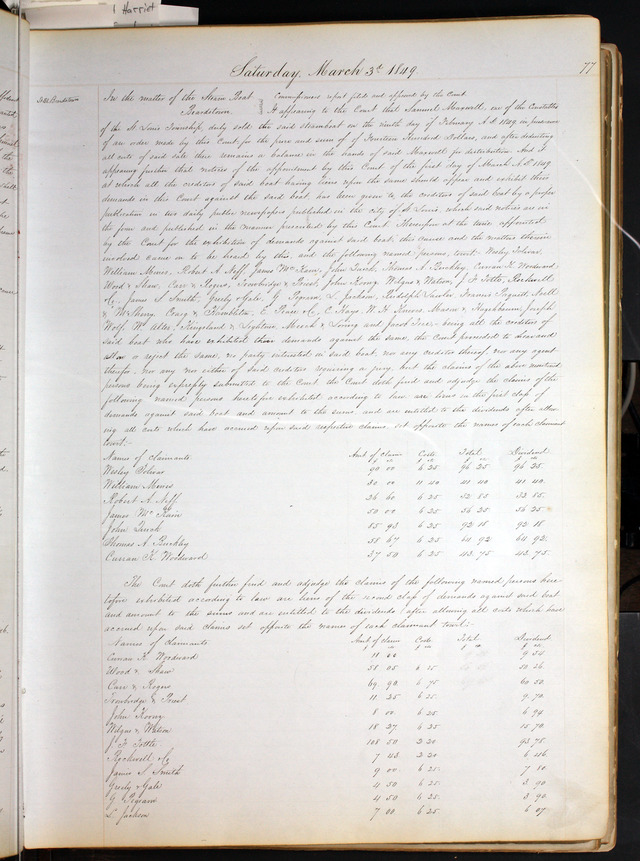 1 Harriet
Saturday, March 3d. 1849.
77
S. B. Beardstown
In the matter of the Steam Boat
Beardstown
Commissioners report filed and approved by the Court
It appearing to the Court that Samuel Maxwell, one of the Constables
of the St. Louis Township, duly sold the said steamboat on the ninth day of February A.D. 1849, in pursuance
of an order made by this Court for the price and sum of of Fourteen Hundred Dollars, and after deducting
all costs of said sale there remains a balance in the hands of said Maxwell for distribution. And it
appearing further that notice of the appointment by this Court of the first day of March A.D. 1849
at which all the creditors of said boat having liens upon the same should appear and exhibit their
demands in this Court against the said boat, has been given to the creditors of said boat by a proper
publication in two daily public newspapers published in the city of St. Louis, which said notices are in
the form and published in the manner prescribed by this Court. Thereupon at the time appointed
by the Court for the exhibition of demands against said boat, this cause and the matters therein
involved came on to be heard by this, and the following named persons, towit: Wesley
William Mows, Robert A. Neff, James McKain, John Quick, Thomas A. Buckley, Curran K. Woodward,
Wood & Shaw, Carr & Rogers, Trowbridge & Prest, John Koong, Wilgus & Watson, J. F. Tottle, Rockwell
& Co., James S. Smith, Greely & Gale, G. Pegram, L. Jackson, Rudolph
& McIlheny, Craig &
Wolf, Kingsland & Lightner, being all the creditors of
said boat who have exhibited their demands against the same, the Court proceeded to hear and
allow or reject the same, no party interested in said boat, nor any creditor thereof, nor any agent
therefor, nor any nor either of said creditors requiring a jury, but the claims of the above mentioned
persons being expressly submitted to the Court, the Court doth find and adjudge the claims of the
following named persons heretofore exhibited according to law are liens in the first class of
demands against said boat and amount to the sums, and are entitled to the dividends after allow
ing all costs which have accrued upon said respective claims set opposite the names of each claimant
towit:-
Names of Claimants Amt of claim Costs Total Dividend
Wesley 90 00 6 25 96 25 96 25.
William Mows 30 00 11 40 41 40 41 40.
Robert A. Neff 26 60 6 25 32 85 32 85.
James McKain 50 00 6 25 56 25 56 25.
John Quick 85 93 6 25 92 18 92 18.
Thomas A. Buckley 58 67 6 25 64 92 64 92.
Curran K. Woodward 37 50 6 25 43 75 43 75.
The Court doth further find and adjudge the claims of the following named persons here
tofore exhibited according to law are liens of the second class of demands against said boat
and amount to the sums and are entitled to the dividends, after allowing all costs which have
accrued upon said claims set opposite the names of each claimant towit:-
Names of claimants Amt of claim Costs Total Dividend
Curran K. Woodward 11 9 54
Wood & Shaw 58 05 6 25 50 26
Carr & Rogers 69 90 6 75 60 50
Trowbridge & Prest 11 25 6 25 9 70
John Koong 8 00 6 25 6 94
Wilgus & Watson 18 27 6 25 15 70
J. F. Tottle 108 50 2 20 93 78
Rockwell & Co 7 43 2 20 6 46
James S. Smith 9 00 6 25 7 80
Greely & Gale 4 50 6 25 3 90
G. Pegram 4 50 6 25 3 90
L. Jackson 7 00 6 25 6 07